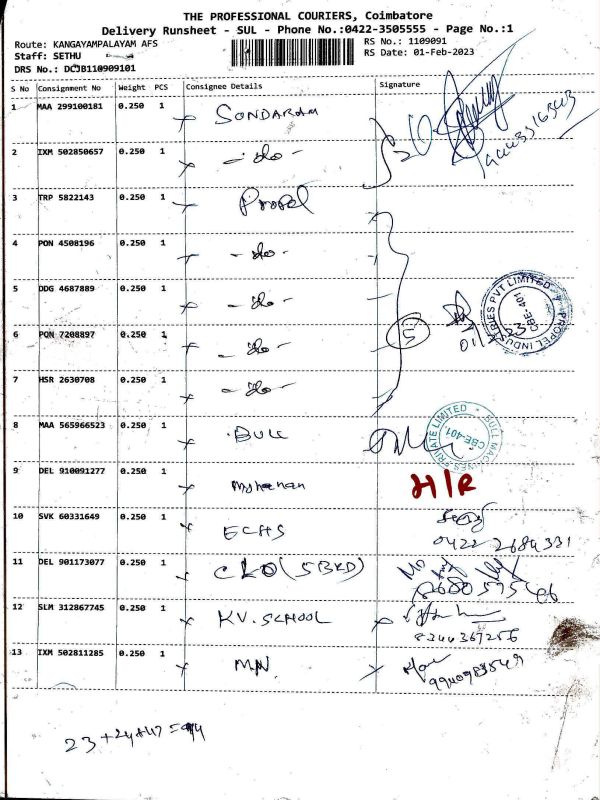 THE PROFESSIONAL COURIERS, Coimbatore
Delivery Runsheet - SUL - Phone No.:0422-3505555 - Page No.:1
Route: KANGAYAMPALAYAM AFS
RS No.: 1109091
Staff: SETHU
RS Date: 01-Feb-2023
DRS No.: DCJB110909101
S No Consignment No Weight PCS Consignee Details Signature
1 MAA 299100181 0.250 1 SONDARAM
2 IXM 502850657 0.250 1 - do -
3 TRP 5822143 0.250 1 Propel
4 PON 4508196 0.250 1 - do -
5 DDG 4687889 0.250 1 - do -
6 PON 7208897 0.250 1 - do -
5
PROPEL INDUSTRIES PVT LIMITED
CBE-401
7 HSR 2630708 0.250 1 - do -
8 MAA 565966523 0.250 1 BULL
BULL MACHINES PRIVATE LIMITED
CBE-401
9 DEL 910091277 0.250 1 H/R
10 SVK 60331649 0.250 1 ECHS
0422 2684331
11 DEL 901173077 0.250 1 CLO (5BRD)
12 SLM 312867745 0.250 1 KV. SCHOOL
8344367256
13 IXM 502811285 0.250 1 MN
23 + 24 + 47 = 94